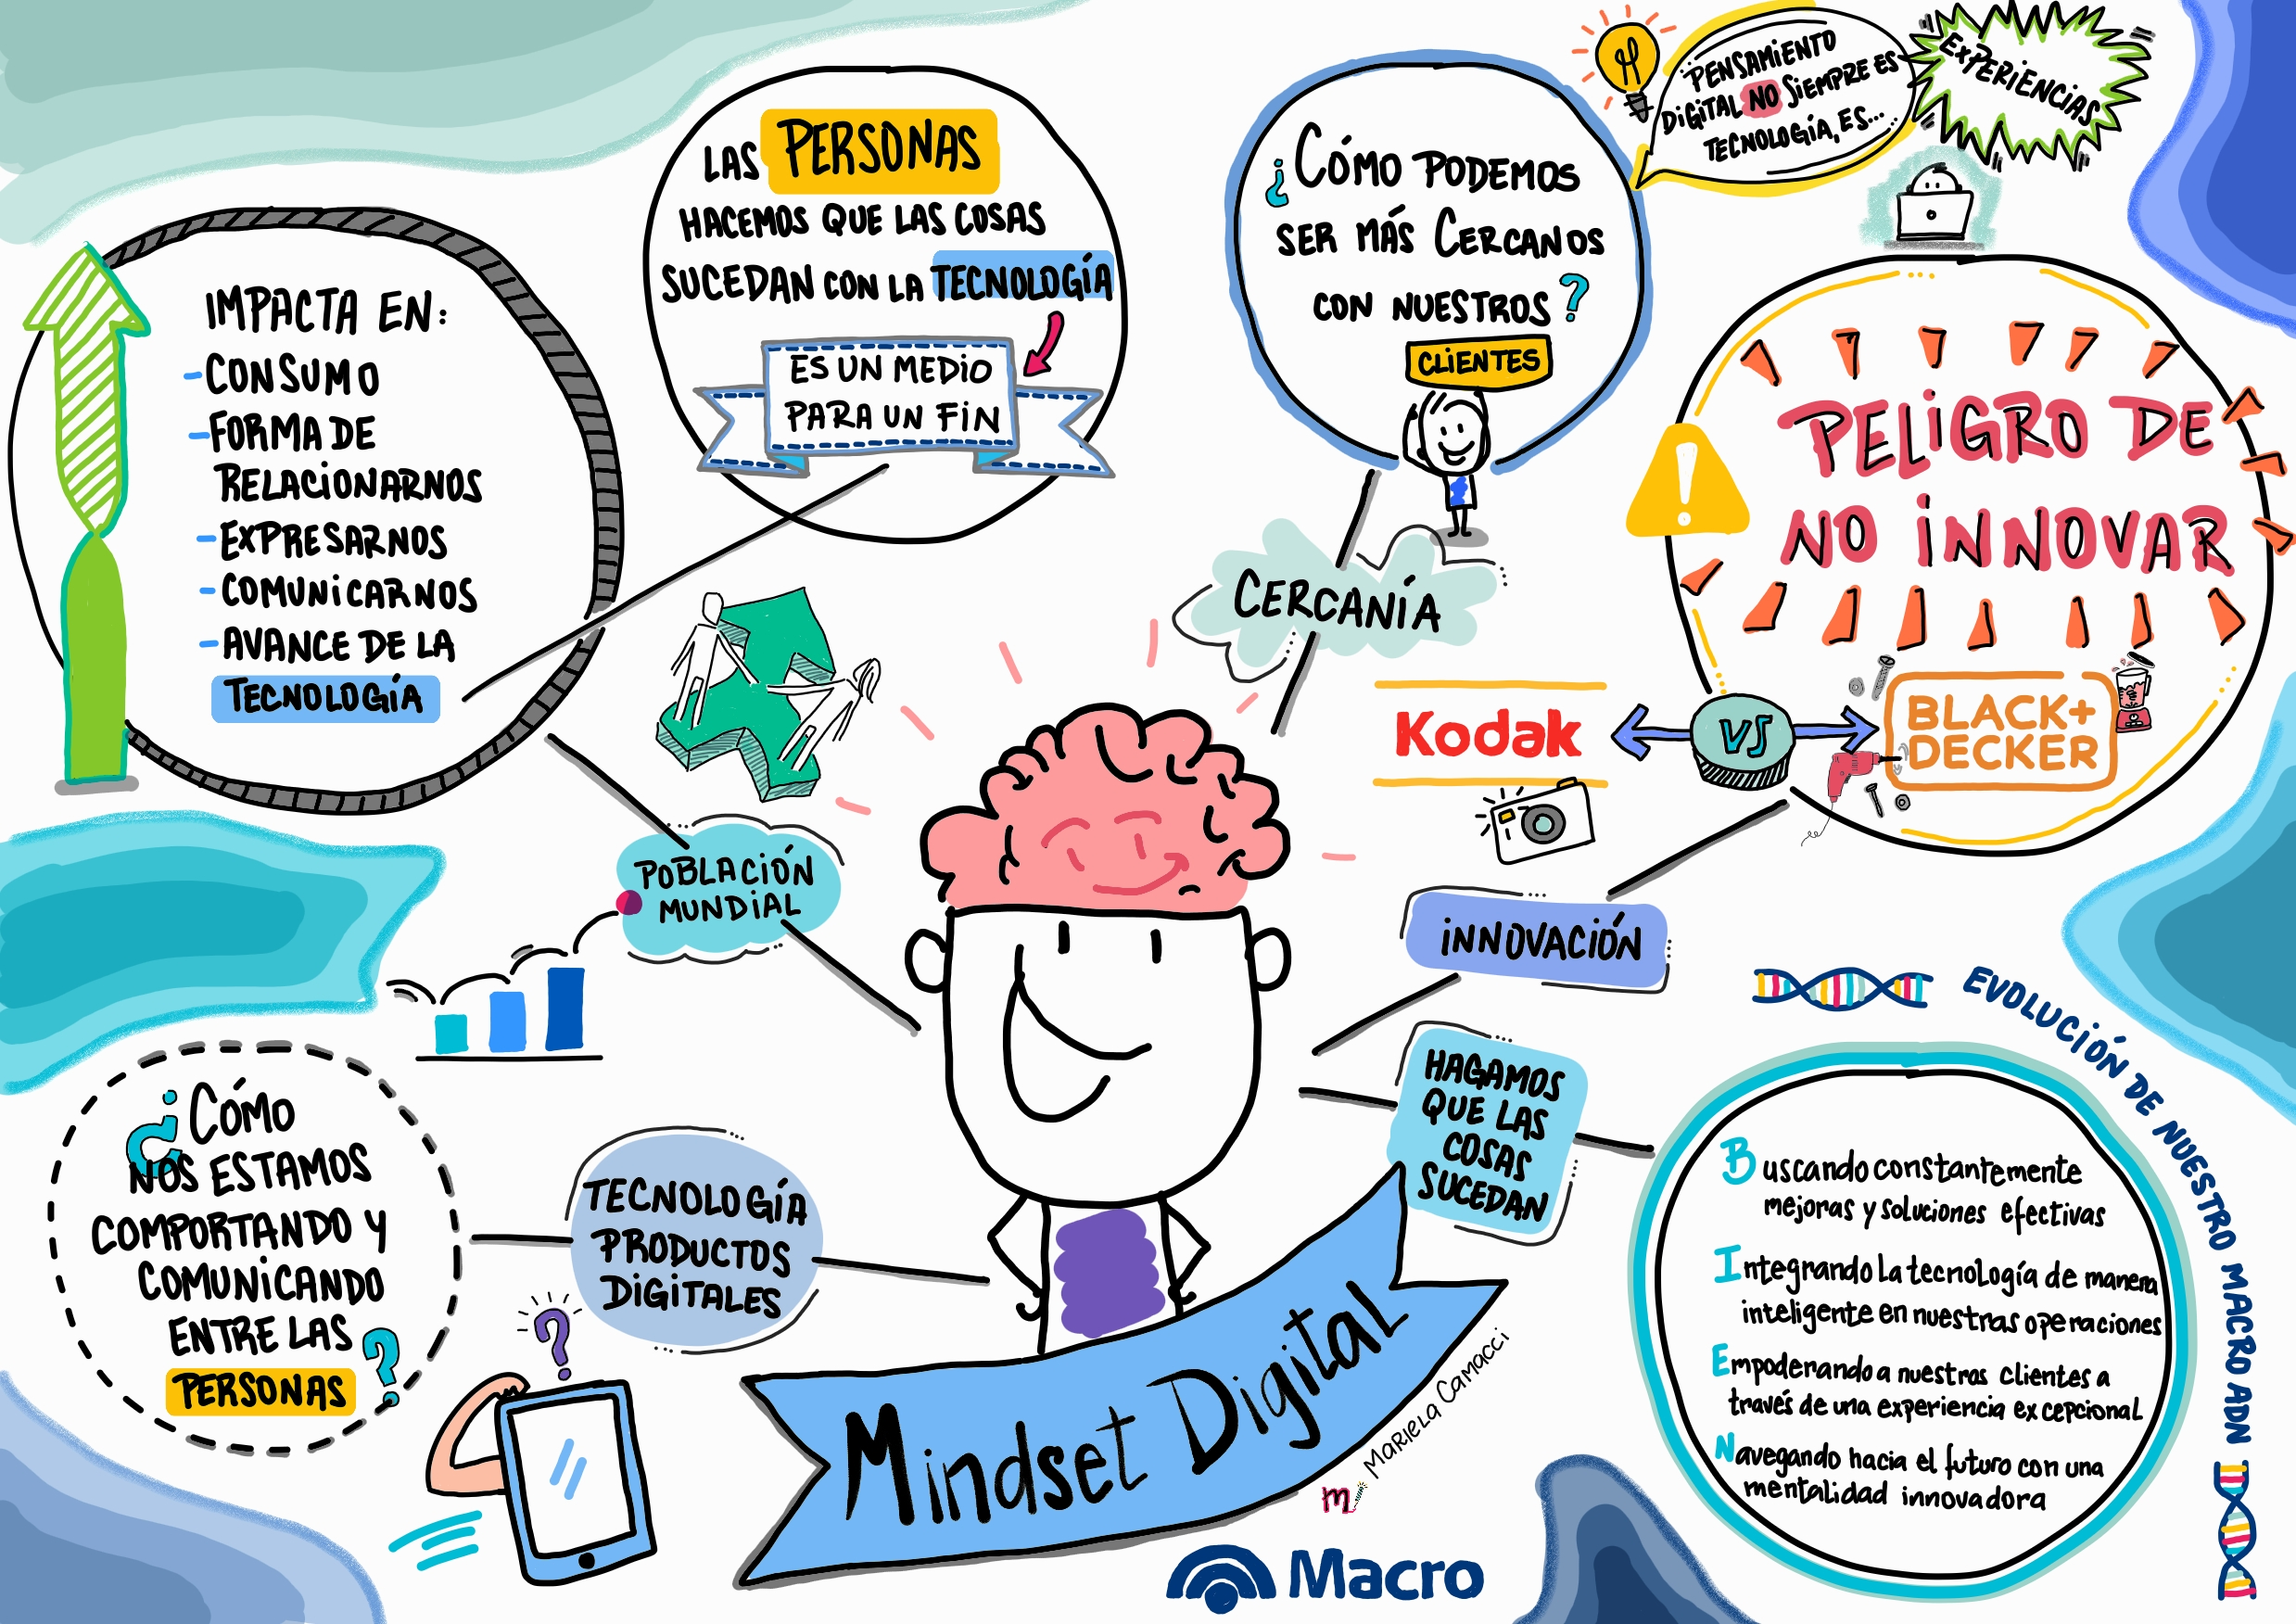 PENSAMIENTO
DIGITAL NO SIEMPRE ES
TECNOLOGÍA, ES...
EXPERIENCIAS
LAS PERSONAS
HACEMOS QUE LAS COSAS
SUCEDAN CON LA TECNOLOGÍA
ES UN MEDIO
PARA UN FIN
¿CÓMO PODEMOS
SER MÁS CERCANOS
CON NUESTROS?
CLIENTES
IMPACTA EN:
-CONSUMO
-FORMA DE
RELACIONARNOS
-EXPRESARNOS
-COMUNICARNOS
-AVANCE DE LA
TECNOLOGÍA
PELIGRO DE
NO INNOVAR
CERCANÍA
Kodak
VS
BLACK+
DECKER
POBLACIÓN
MUNDIAL
INNOVACIÓN
¿CÓMO
NOS ESTAMOS
COMPORTANDO Y
COMUNICANDO
ENTRE LAS
PERSONAS?
TECNOLOGÍA
PRODUCTOS
DIGITALES
?
HAGAMOS
QUE LAS
COSAS
SUCEDAN
EVOLUCIÓN DE NUESTRO MACRO ADN
Buscando constantemente
mejoras y soluciones efectivas
Integrando la tecnología de manera
inteligente en nuestras operaciones
Empoderando a nuestros clientes a
través de una experiencia excepcional
Navegando hacia el futuro con una
mentalidad innovadora
Mindset Digital
m MARIELA CAMACCI
Macro